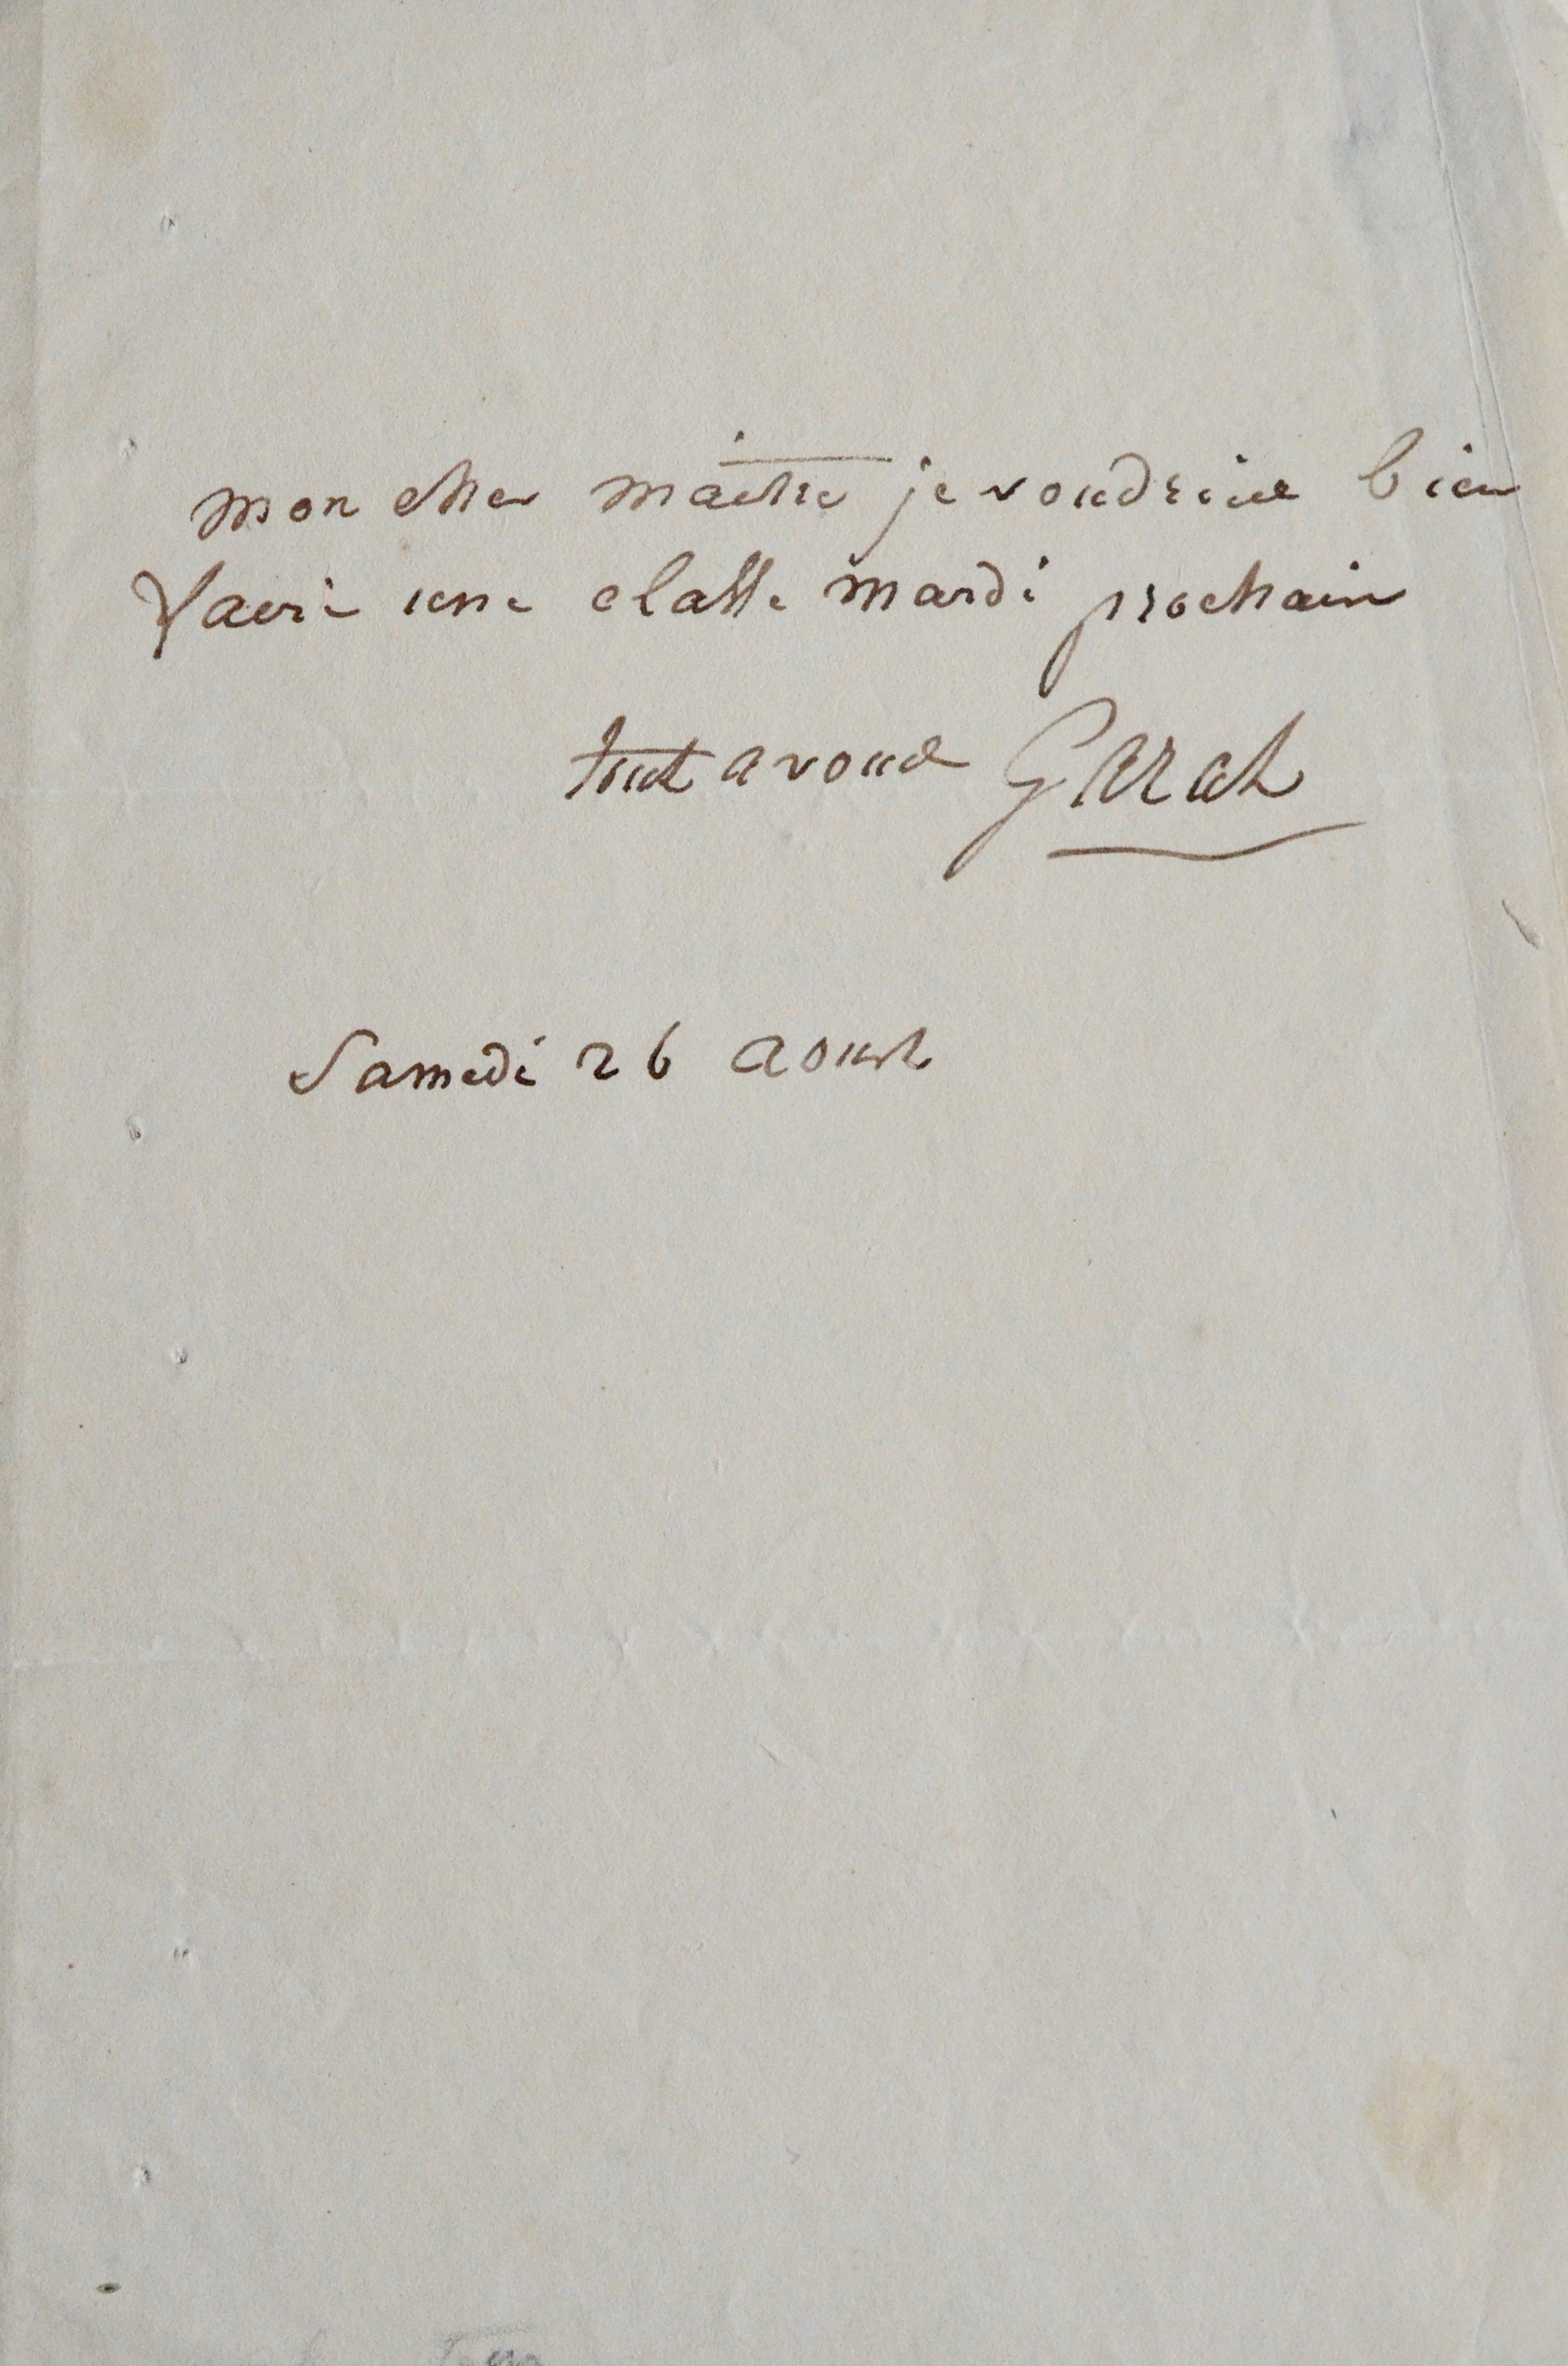 mon cher maitre je voudrais bien
faire une classe mardi prochain
tout a vous Garat
Samedi 26 aoust